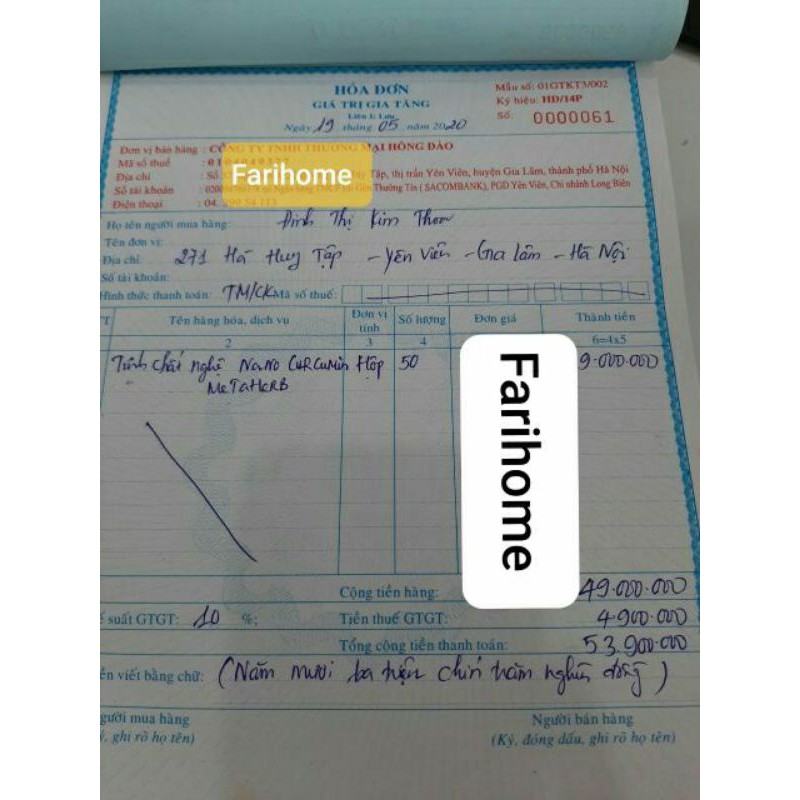 HÓA ĐƠN
GIÁ TRỊ GIA TĂNG
Liên 1: Lưu
Ngày 19 tháng 05 năm 2020
Mẫu số: 01GTKT3/002
Ký hiệu: HD/14P
Số: 0000061
Đơn vị bán hàng : CÔNG TY TNHH THƯƠNG MẠI HỒNG ĐÀO
Mã số thuế :
Farihome
Địa chỉ : Số Tập, thị trấn Yên Viên, huyện Gia Lâm, thành phố Hà Nội
Số tài khoản : Thương Tín ( SACOMBANK), PGD Yên Viên, Chi nhánh Long Biên
Điện thoại : 04.
Họ tên người mua hàng: Đinh Thị Kim Thoa
Tên đơn vị:
Địa chỉ: 271 Hà Huy Tập - Yên Viên - Gia Lâm - Hà Nội
Số tài khoản:
Hình thức thanh toán: TM/CK Mã số thuế:
T Tên hàng hóa, dịch vụ Đơn vị tính Số lượng Đơn giá Thành tiền
2 3 4 6=4x5
Tinh chất nghệ NaNo CURCuMin Hộp 50 9.000.000
MeTaHeRB
Farihome
Cộng tiền hàng: 49.000.000
suất GTGT: 10 %; Tiền thuế GTGT: 4900.000
Tổng cộng tiền thanh toán: 53.900.000
ền viết bằng chữ: (Năm mươi ba triệu chín trăm nghìn đồng)
gười mua hàng Người bán hàng
ý, ghi rõ họ tên) (Ký, đóng dấu, ghi rõ họ tên)